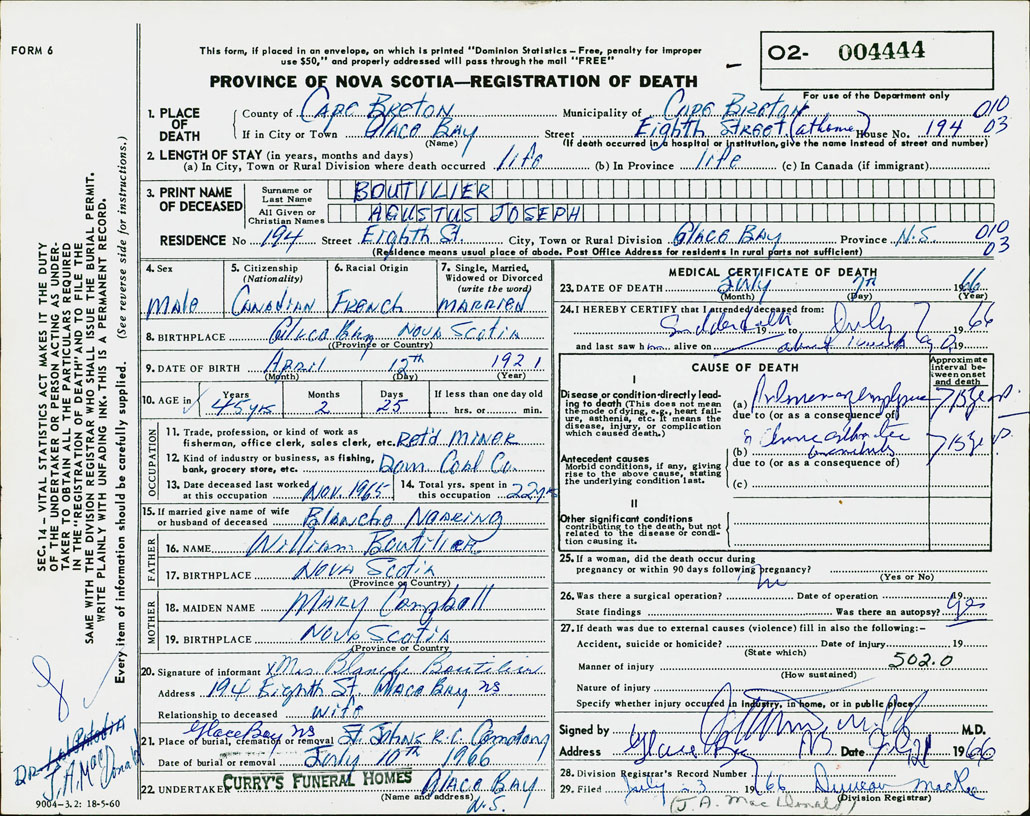 FORM 6
This form, if placed in an envelope, on which is printed "Dominion Statistics – Free, penalty for improper
use $50," and properly addressed will pass through the mail "FREE"
O2- 004444
PROVINCE OF NOVA SCOTIA—REGISTRATION OF DEATH
For use of the Department only
1. PLACE OF DEATH
County of Cape Breton Municipality of Cape Breton 010
If in City or Town Glace Bay Street Eighth Street (at home) House No. 194 03
(Name) (If death occurred in a hospital or institution, give the name instead of street and number)
2. LENGTH OF STAY (in years, months and days)
(a) In City, Town or Rural Division where death occurred life (b) In Province life (c) In Canada (if immigrant)
3. PRINT NAME OF DECEASED
Surname or Last Name BOUTILIER
All Given or Christian Names AGUSTUS JOSEPH
RESIDENCE No 194 Street Eighth St. City, Town or Rural Division Glace Bay Province N.S. 010 03
(Residence means usual place of abode. Post Office Address for residents in rural parts not sufficient)
4. Sex Male
5. Citizenship (Nationality) Canadian
6. Racial Origin French
7. Single, Married, Widowed or Divorced (write the word) Married
8. BIRTHPLACE Glace Bay Nova Scotia
(Province or Country)
9. DATE OF BIRTH April 12th 1921
(Month) (Day) (Year)
10. AGE in Years 45 yrs Months 2 Days 25 If less than one day old hrs. or min.
OCCUPATION
11. Trade, profession, or kind of work as
fisherman, office clerk, sales clerk, etc. Ret'd Miner
12. Kind of industry or business, as fishing,
bank, grocery store, etc. Dom Coal Co.
13. Date deceased last worked at this occupation Nov. 1965
14. Total yrs. spent in this occupation 22 yrs
15. If married give name of wife
or husband of deceased Blanche Nearing
FATHER
16. NAME William Boutilier
17. BIRTHPLACE Nova Scotia
(Province or Country)
MOTHER
18. MAIDEN NAME Mary Campbell
19. BIRTHPLACE Nova Scotia
(Province or Country)
20. Signature of informant x Mrs. Blanche Boutilier
Address 194 Eighth St. Glace Bay NS
Relationship to deceased wife
Glace Bay NS
21. Place of burial, cremation or removal St. Johns R.C. Cemetery
Date of burial or removal July 10th 1966
22. UNDERTAKER CURRY'S FUNERAL HOMES Glace Bay
(Name and address) N.S.
MEDICAL CERTIFICATE OF DEATH
23. DATE OF DEATH July 7th 1966
(Month) (Day) (Year)
24. I HEREBY CERTIFY that I attended deceased from:
Sudden death 19 to July 7 1966
and last saw h alive on 19
CAUSE OF DEATH
Approximate interval between onset and death
I
Disease or condition directly leading to death (This does not mean
the mode of dying, e.g., heart failure, asthenia, etc. It means the
disease, injury, or complication
which caused death.)
(a) Pulmonary emphysema
due to (or as a consequence of)
Antecedent causes
Morbid conditions, if any, giving
rise to the above cause, stating
the underlying condition last.
(b) bronchitis
due to (or as a consequence of)
(c)
II
Other significant conditions
contributing to the death, but not
related to the disease or condition causing it.
25. If a woman, did the death occur during
pregnancy or within 90 days following pregnancy?
(Yes or No)
26. Was there a surgical operation? no Date of operation 19
State findings Was there an autopsy? Yes
27. If death was due to external causes (violence) fill in also the following:–
Accident, suicide or homicide? Date of injury 19
(State which)
Manner of injury 502.0
(How sustained)
Nature of injury
Specify whether injury occurred in industry, in home, or in public place
Signed by M.D.
Address Glace Bay NS Date 1966
28. Division Registrar's Record Number
29. Filed July 23 1966 Duncan MacRae
(Division Registrar)
(J. A. MacDonald)
SEC. 14 – VITAL STATISTICS ACT MAKES IT THE DUTY
OF THE UNDERTAKER OR PERSON ACTING AS UNDERTAKER TO OBTAIN ALL THE PARTICULARS REQUIRED
IN THE "REGISTRATION OF DEATH" AND TO FILE THE
SAME WITH THE DIVISION REGISTRAR WHO SHALL ISSUE THE BURIAL PERMIT.
WRITE PLAINLY WITH UNFADING INK. THIS IS A PERMANENT RECORD.
Every item of information should be carefully supplied. (See reverse side for instructions.)
Dr.
J.A. MacDonald
9004–3.2: 18-5-60